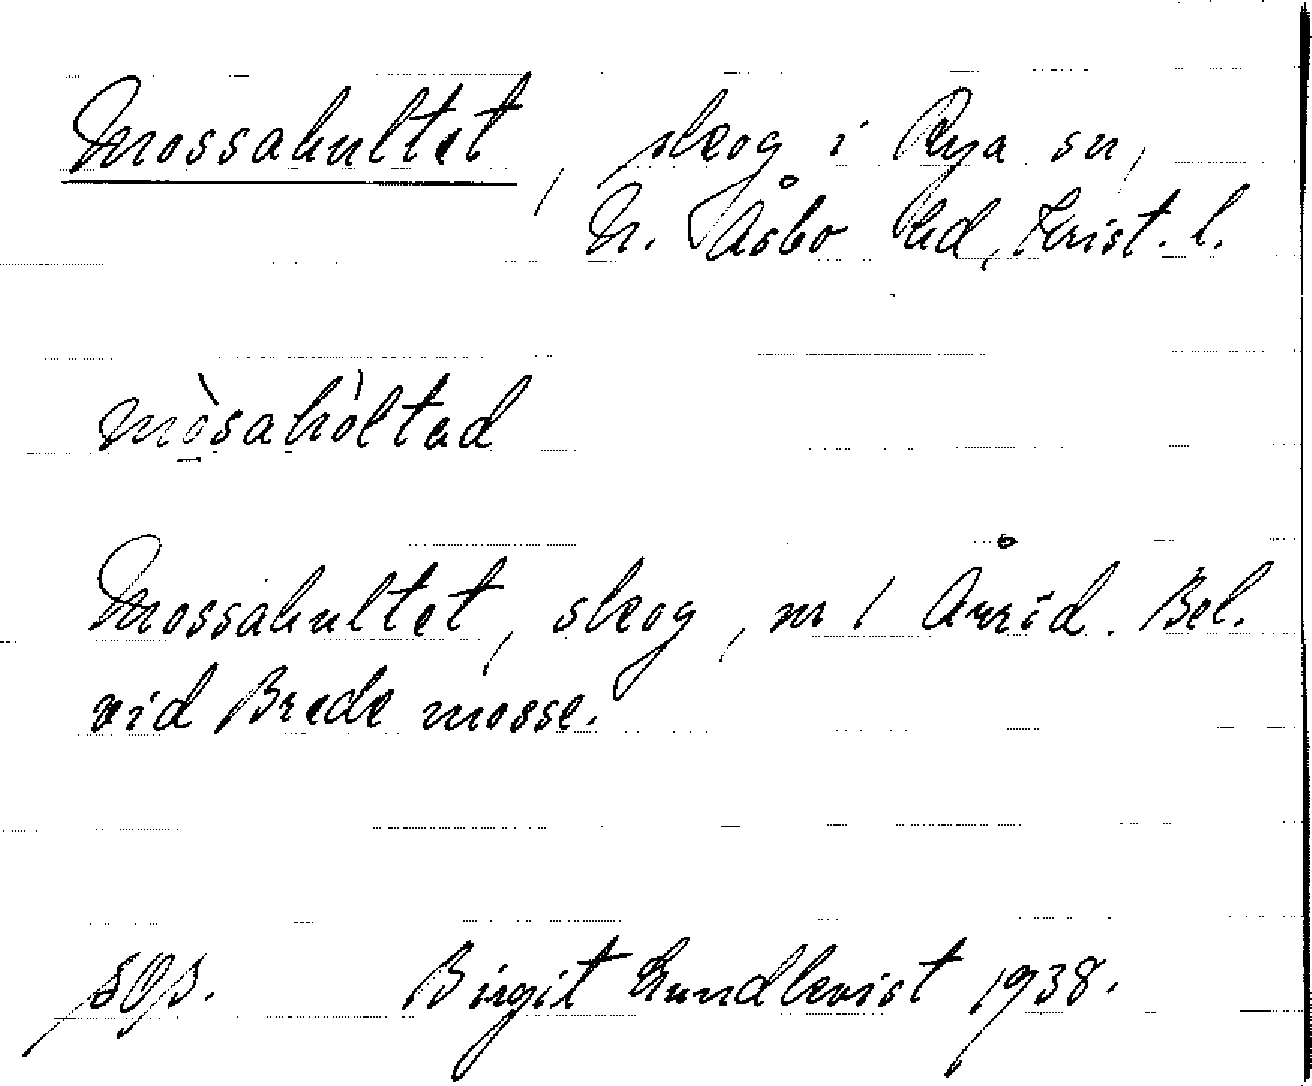 Mossahultet, skog i Rya sn,
N. Åsbo hd, Krist. l.
mòsahòltad
Mossahultet, skog, nr 1 Åvrid. Bel.
vid Brede mosse.
Birgit Lundkvist 1938.